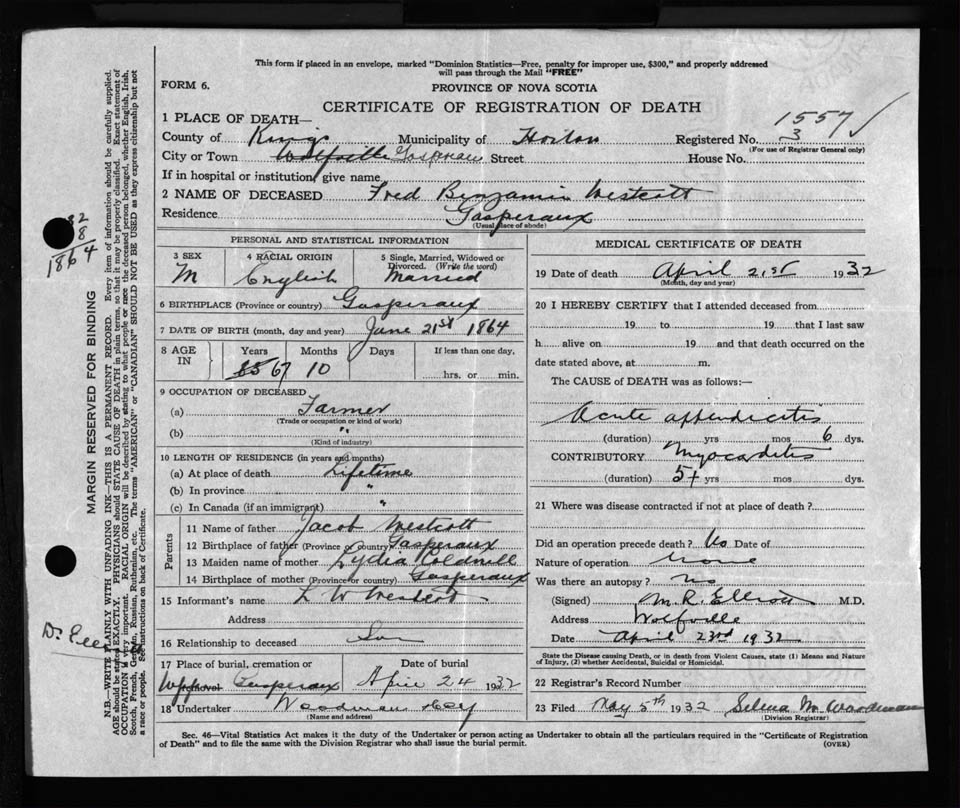 This form if placed in an envelope, marked "Dominion Statistics—Free, penalty for improper use, $300," and properly addressed
will pass through the Mail "FREE"
FORM 6.
PROVINCE OF NOVA SCOTIA
CERTIFICATE OF REGISTRATION OF DEATH
1557 ✓
1 PLACE OF DEATH—
County of Kings Municipality of Horton Registered No. 3
(For use of Registrar General only)
City or Town Wolfville Gaspereau Street House No.
If in hospital or institution, give name
2 NAME OF DECEASED Fred Benjamin Westcott
Residence Gasperaux
(Usual place of abode)
PERSONAL AND STATISTICAL INFORMATION
3 SEX M
4 RACIAL ORIGIN English
5 Single, Married, Widowed or Divorced. (Write the word) Married
6 BIRTHPLACE (Province or country) Gasperaux
7 DATE OF BIRTH (month, day and year) June 21st 1864
8 AGE IN Years Months Days If less than one day,
67 10 hrs. or min.
9 OCCUPATION OF DECEASED
(a) Farmer
(Trade or occupation or kind of work)
(b) "
(Kind of industry)
10 LENGTH OF RESIDENCE (in years and months)
(a) At place of death Lifetime
(b) In province "
(c) In Canada (if an immigrant) "
Parents
11 Name of father Jacob Westcott
12 Birthplace of father (Province or country) Gasperaux
13 Maiden name of mother Lydia Coldwell
14 Birthplace of mother (Province or country) Gasperaux
15 Informant's name L W Westcott
Address
16 Relationship to deceased Son
17 Place of burial, cremation or removal Gasperaux
Date of burial April 24 1932
18 Undertaker Woodman
(Name and address)
MEDICAL CERTIFICATE OF DEATH
19 Date of death April 21st 1932
(Month, day and year)
20 I HEREBY CERTIFY that I attended deceased from
19 to 19 that I last saw
h alive on 19 and that death occurred on the
date stated above, at m.
The CAUSE of DEATH was as follows:—
Acute appendicitis
(duration) yrs mos 6 dys.
CONTRIBUTORY Myocarditis
(duration) 5+ yrs mos. dys.
21 Where was disease contracted if not at place of death?
Did an operation precede death? No Date of
Nature of operation none
Was there an autopsy? no
(Signed) M. R. Elliott M.D.
Address Wolfville
Date April 23rd 1932
State the Disease causing Death, or in death from Violent Causes, state (1) Means and Nature
of Injury, (2) whether Accidental, Suicidal or Homicidal.
22 Registrar's Record Number
23 Filed May 5th 1932 Selena M Woodman
(Division Registrar)
Sec. 46—Vital Statistics Act makes it the duty of the Undertaker or person acting as Undertaker to obtain all the particulars required in the "Certificate of Registration
of Death" and to file the same with the Division Registrar who shall issue the burial permit.
(OVER)
MARGIN RESERVED FOR BINDING
N.B.—WRITE PLAINLY WITH UNFADING INK—THIS IS A PERMANENT RECORD. Every item of information should be carefully supplied.
AGE should be stated EXACTLY. PHYSICIANS should STATE CAUSE OF DEATH in plain terms, so that it may be properly classified. Exact statement of
OCCUPATION is very important. RACIAL ORIGIN will be described by stating to what people or race the deceased person belonged, whether English, Irish,
Scotch, French, German, Russian, Ruthenian, etc. The terms "AMERICAN" or "CANADIAN" SHOULD NOT BE USED as they express citizenship but not
a race or people. See instructions on back of Certificate.
32
8
1864